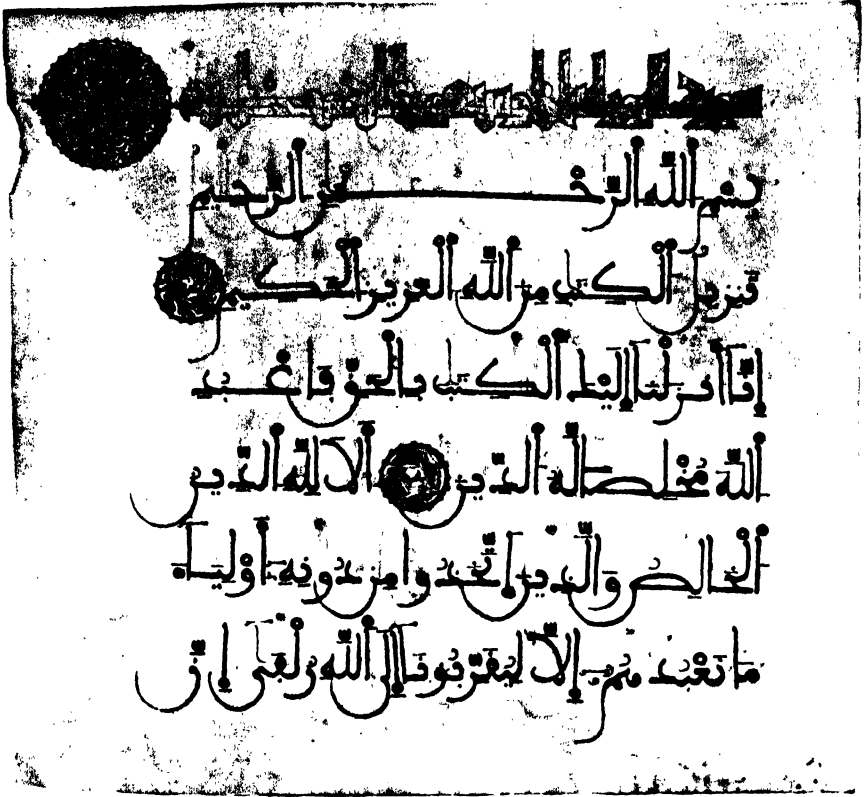 بِسْمِ ٱللَّهِ ٱلرَّحْمَٰنِ ٱلرَّحِيمِ
تَنزِيلُ ٱلْكِتَٰبِ مِنَ ٱللَّهِ ٱلْعَزِيزِ ٱلْحَكِيمِ
إِنَّا أَنزَلْنَا إِلَيْكَ ٱلْكِتَٰبَ بِٱلْحَقِّ فَٱعْبُدِ
ٱللَّهَ مُخْلِصًا لَّهُ ٱلدِّينَ أَلَا لِلَّهِ ٱلدِّينُ
ٱلْخَالِصُ وَٱلَّذِينَ ٱتَّخَذُوا مِن دُونِهِ أَوْلِيَاءَ
مَا نَعْبُدُهُمْ إِلَّا لِيُقَرِّبُونَا إِلَى ٱللَّهِ زُلْفَىٰ إِنَّ